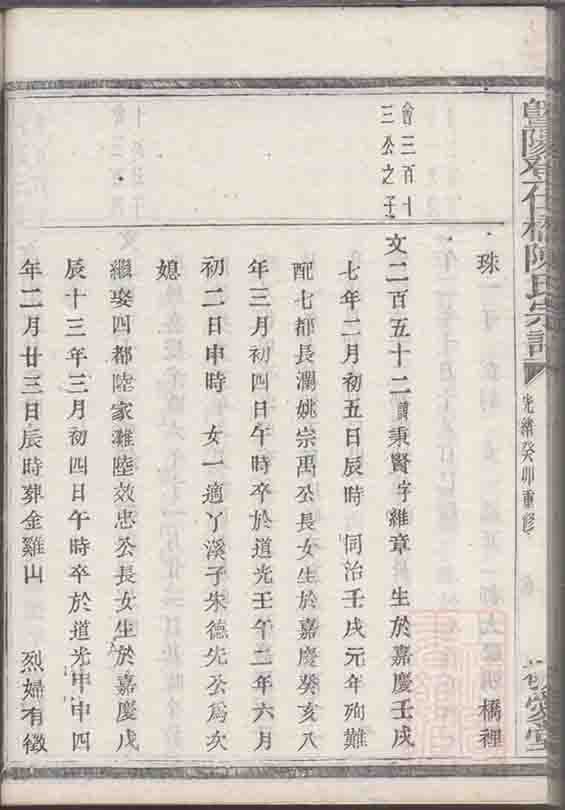 暨陽孝仁橋陳氏宗譜
光緒癸卯重修
會三百十
三公之子
珠
橋裡
文二百五十二諱秉賢字維章 生於嘉慶壬戌
七年二月初五日辰時 同治壬戌元年殉難
配七都長瀾姚宗禹公長女生於嘉慶癸亥八
年三月初四日午時卒於道光壬午二年六月
初二日申時 女一適丫溪子朱德先公為次
媳
繼娶四都陸家灘陸效忠公長女生於嘉慶戊
辰十三年三月初四日午時卒於道光甲申四
年二月廿三日辰時葬金雞山 烈婦有徵